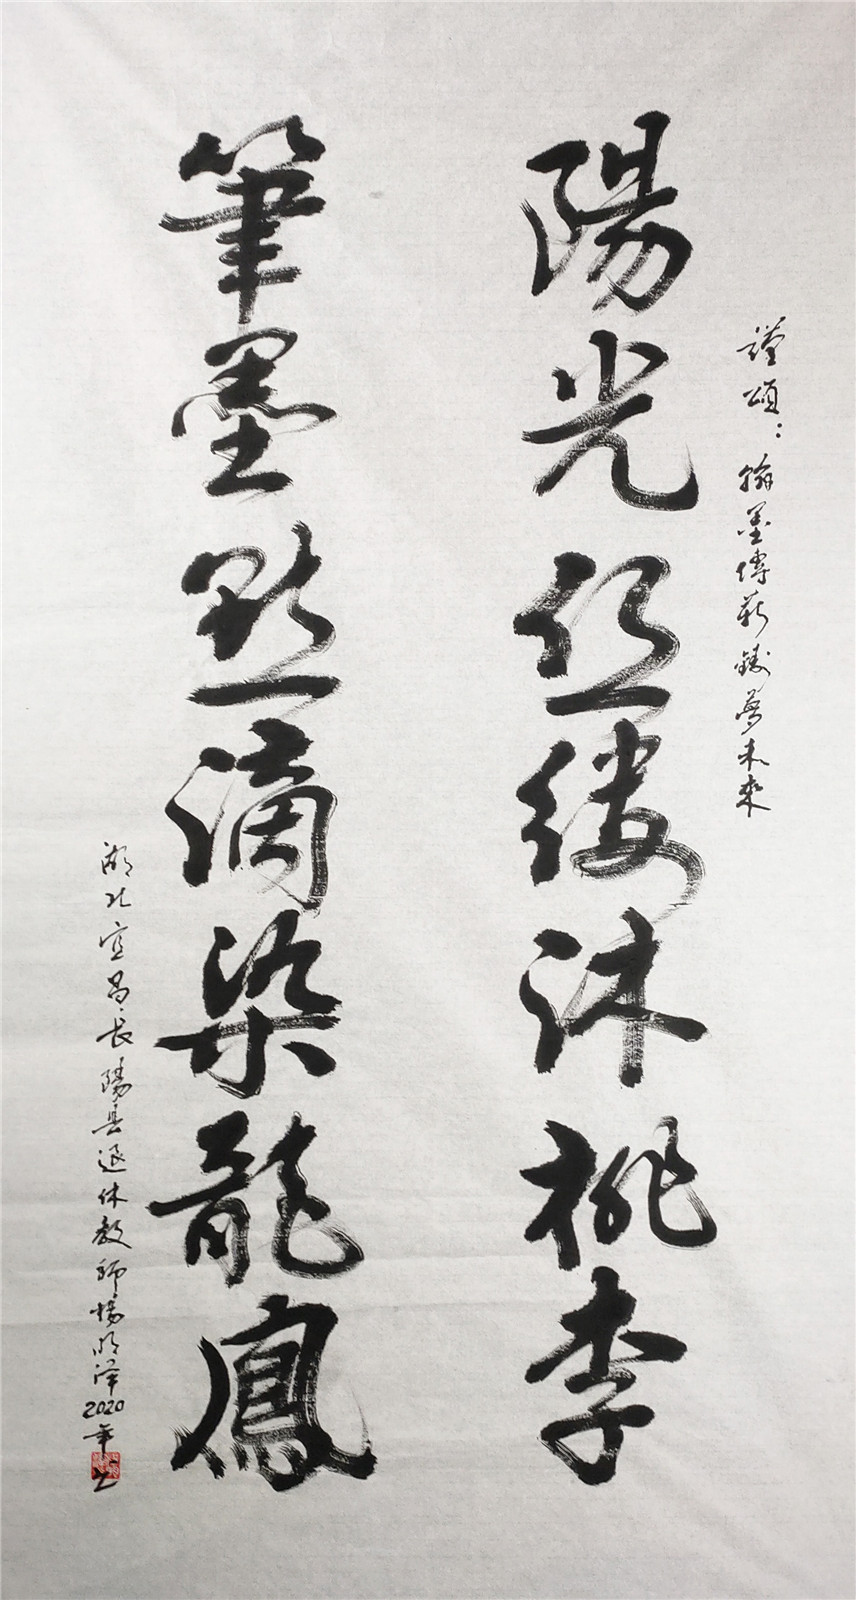 謹頌：翰墨傳薪鑄夢未來
陽光丝缕沐桃李
筆墨點滴染龍鳳
湖北宜昌长陽县退休教師楊明泽2020年书